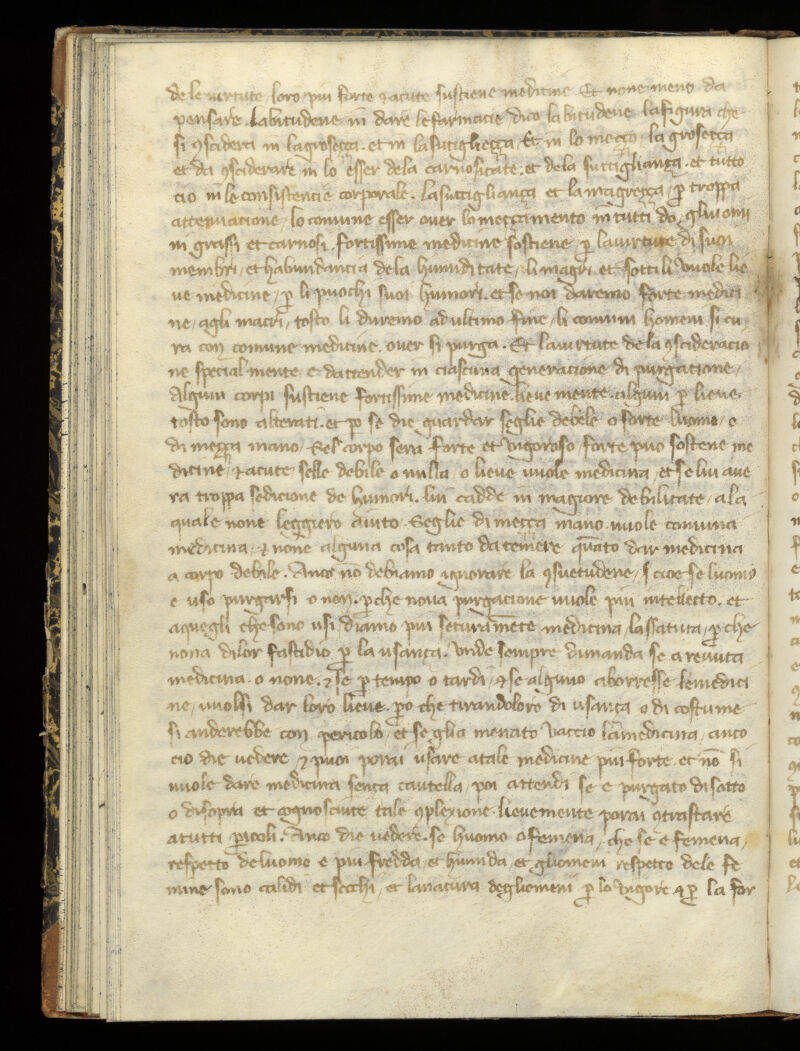 de le uirtute loro piu forte 7 acute sustiene medicine. Et none meno da
pensare labitudene in dare le farmacie dico labitudene la figura che
si 9sidera in la groseçça. et in la sutiglieçça. Et in lo meçço. la groseçça
et da 9siderare in lo esser dela carnositate. et dela suttigliança. et tutto
cio in le consistencie corporale. la suttigliança et la magreçça / p troppa
attenuatione / lo comune esser ouer lo meççamento in tutti do. gliuomini
in grassi et carnosi. fortissime medicine sostiene. p la uirtute di suoi
membri / et habundancia dela humiditate / li magri et sottili uuole lie
ue medicine / p li puochi suoi humori. et se noi daremo forte medici
ne / agli macri / tosto li duremo ad ultimo fine / li comuni homeni si cu
ra con comune medicine. ouer si purga. Et la uirtute de la 9sideracio
ne specialmente e dattender in ciascuna generacione di purgatione /
Alguni corpi sustiene fortissime medicine. lieue mente. alguni p lieue.
tosto sono alterati. et po se die guardar seglie debele o forte luomo / o
di meçça mano / Sel corpo sera forte et uigoroso / forte puo sostene me
dicine / 7 acute / selle debile o nulla o lieue uuole medicina / et se lui aue
ra troppa sedicione de humori. lui cadde in magiore debilitate / ala
quale none leggiero aiuto. Seglie di meçça mano. uuole comuna
medicina / 7 none alguna cosa tanto da temere quato dar medicina
a corpo debile. Anco no debiamo ignorare la 9suetudene / cioe se luomo
e uso purgarsi o non. p che noua purgacione uuole piu intelletto. et
aquegli che sono usi diamo piu securamete medicina / lassatiua / p che
nona dilor fastidio p la usança. Unde sempre dimanda se a reuuta
medicina. o none. 7 se p tempo o tardi / 7 se alguno aborresse le medici
ne / uuolsi dar loro lieue. po che tirandoloro di usança o di costume
si anderebbe con pericolo / et se glia menato uaccio la medicina / anco
cio die uedere / 7 puoi porai usare atale medicine piu forte. et no si
uuole dare medicina sença cautella / poi attendi se e purgato di sotto
o di sopra et cognosciute tale 9plexione. lieuemente porai 9trastare
a tutti picoli. Anco die uedere. se huomo o femena / che se e femena /
respetto de luomo e piu fredda / et humida / et gliomeni respetto dele fe
mine sono calidi et secchi / et la natura degliomeni p lo uigore 7 p la for